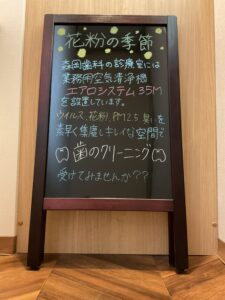 花粉の季節
森岡歯科の診療室には
業務用空気清浄機
エアロシステム35M
を設置しています。
ウイルス、花粉、PM2.5、臭いを
素早く集塵しキレイな空間で
歯のクリーニング
受けてみませんか??